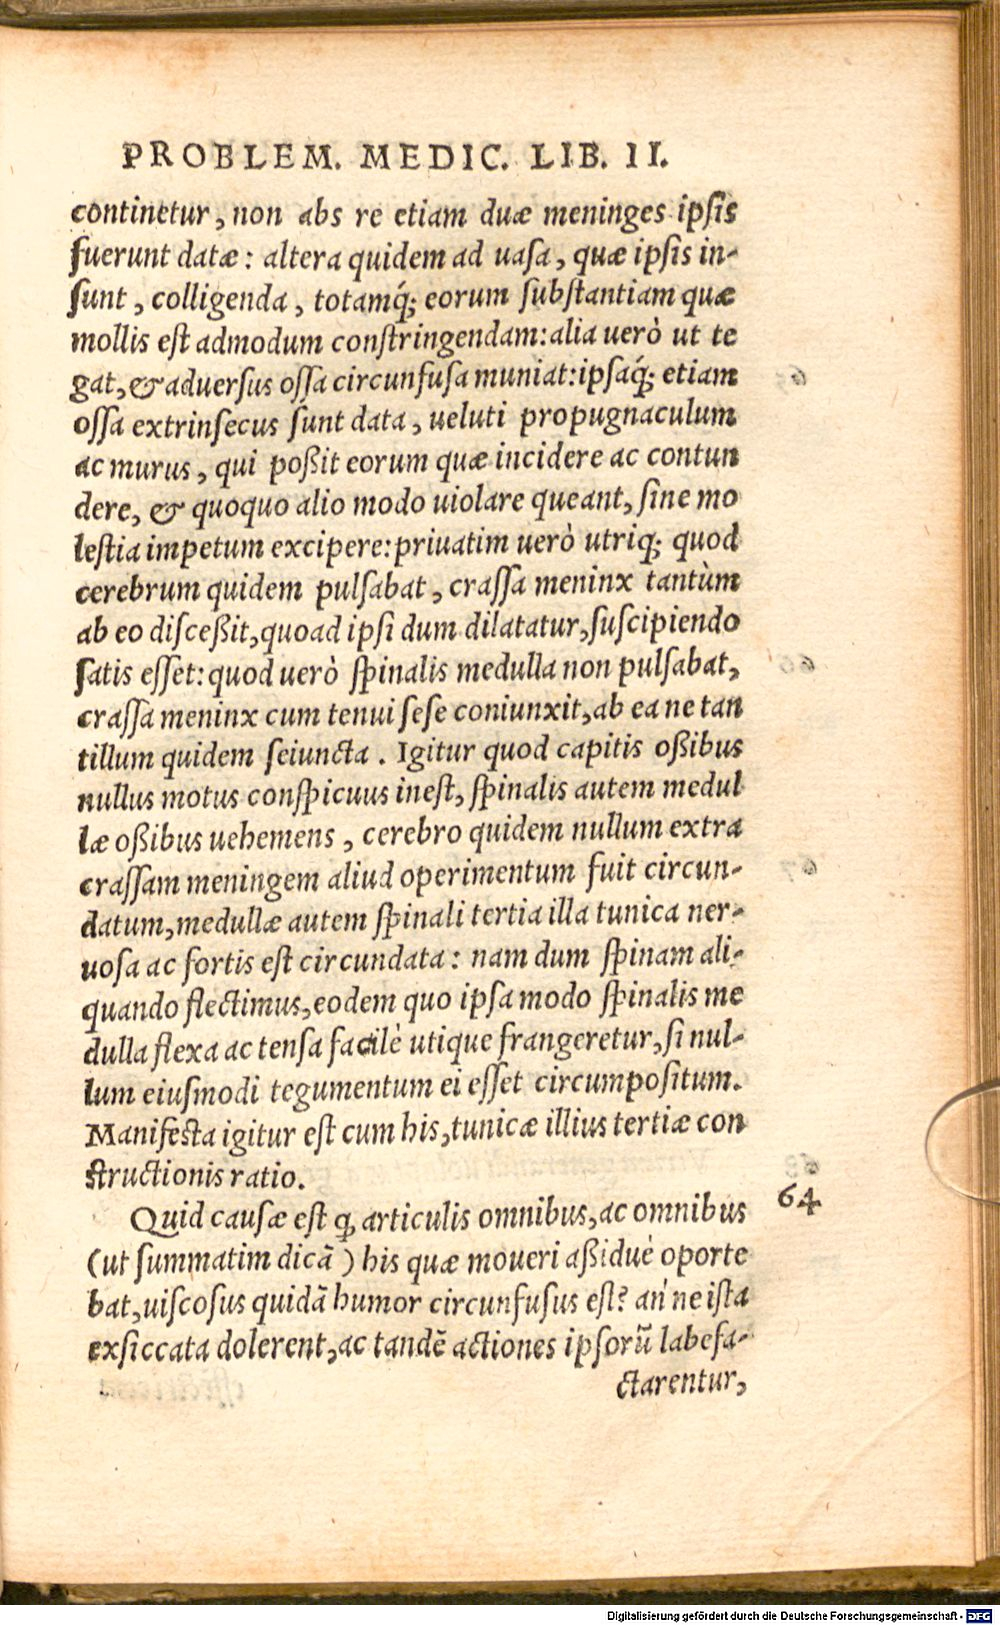 PROBLEM. MEDIC. LIB. II.
continetur, non abs re etiam duæ meninges ipſis
fuerunt datæ: altera quidem ad uaſa, quæ ipſis in-
ſunt, colligenda, totamq́; eorum ſubſtantiam quæ
mollis eſt admodum conſtringendam: alia uerò ut te
gat, & aduerſus oſſa circunfuſa muniat: ipſaq́; etiam
oſſa extrinſecus ſunt data, ueluti propugnaculum
ac murus, qui poßit eorum quæ incidere ac contun
dere, & quoquo alio modo uiolare queant, ſine mo
leſtia impetum excipere: priuatim uerò utriq; quod
cerebrum quidem pulſabat, craſſa meninx tantùm
ab eo diſceßit, quoad ipſi dum dilatatur, ſuſcipiendo
ſatis eſſet: quod uerò ſpinalis medulla non pulſabat,
craſſa meninx cum tenui ſeſe coniunxit, ab ea ne tan
tillum quidem ſeiuncta. Igitur quod capitis oßibus
nullus motus conſpicuus ineſt, ſpinalis autem medul
læ oßibus uehemens, cerebro quidem nullum extra
craſſam meningem aliud operimentum fuit circun-
datum, medullæ autem ſpinali tertia illa tunica ner-
uoſa ac fortis eſt circundata: nam dum ſpinam ali-
quando flectimus, eodem quo ipſa modo ſpinalis me
dulla flexa ac tenſa facilè utique frangeretur, ſi nul-
lum eiuſmodi tegumentum ei eſſet circumpoſitum.
Manifeſta igitur eſt cum his, tunicæ illius tertiæ con
ſtructionis ratio.
64
Quid cauſæ eſt ꝙ articulis omnibus, ac omnibus
(ut ſummatim dicã) his quæ moueri aßiduè oporte
bat, uiſcoſus quidã humor circunfuſus eſt? an' ne iſta
exſiccata dolerent, ac tandẽ actiones ipſorũ labefa-
ctarentur,
Digitalisierung gefördert durch die Deutsche Forschungsgemeinschaft - DFG